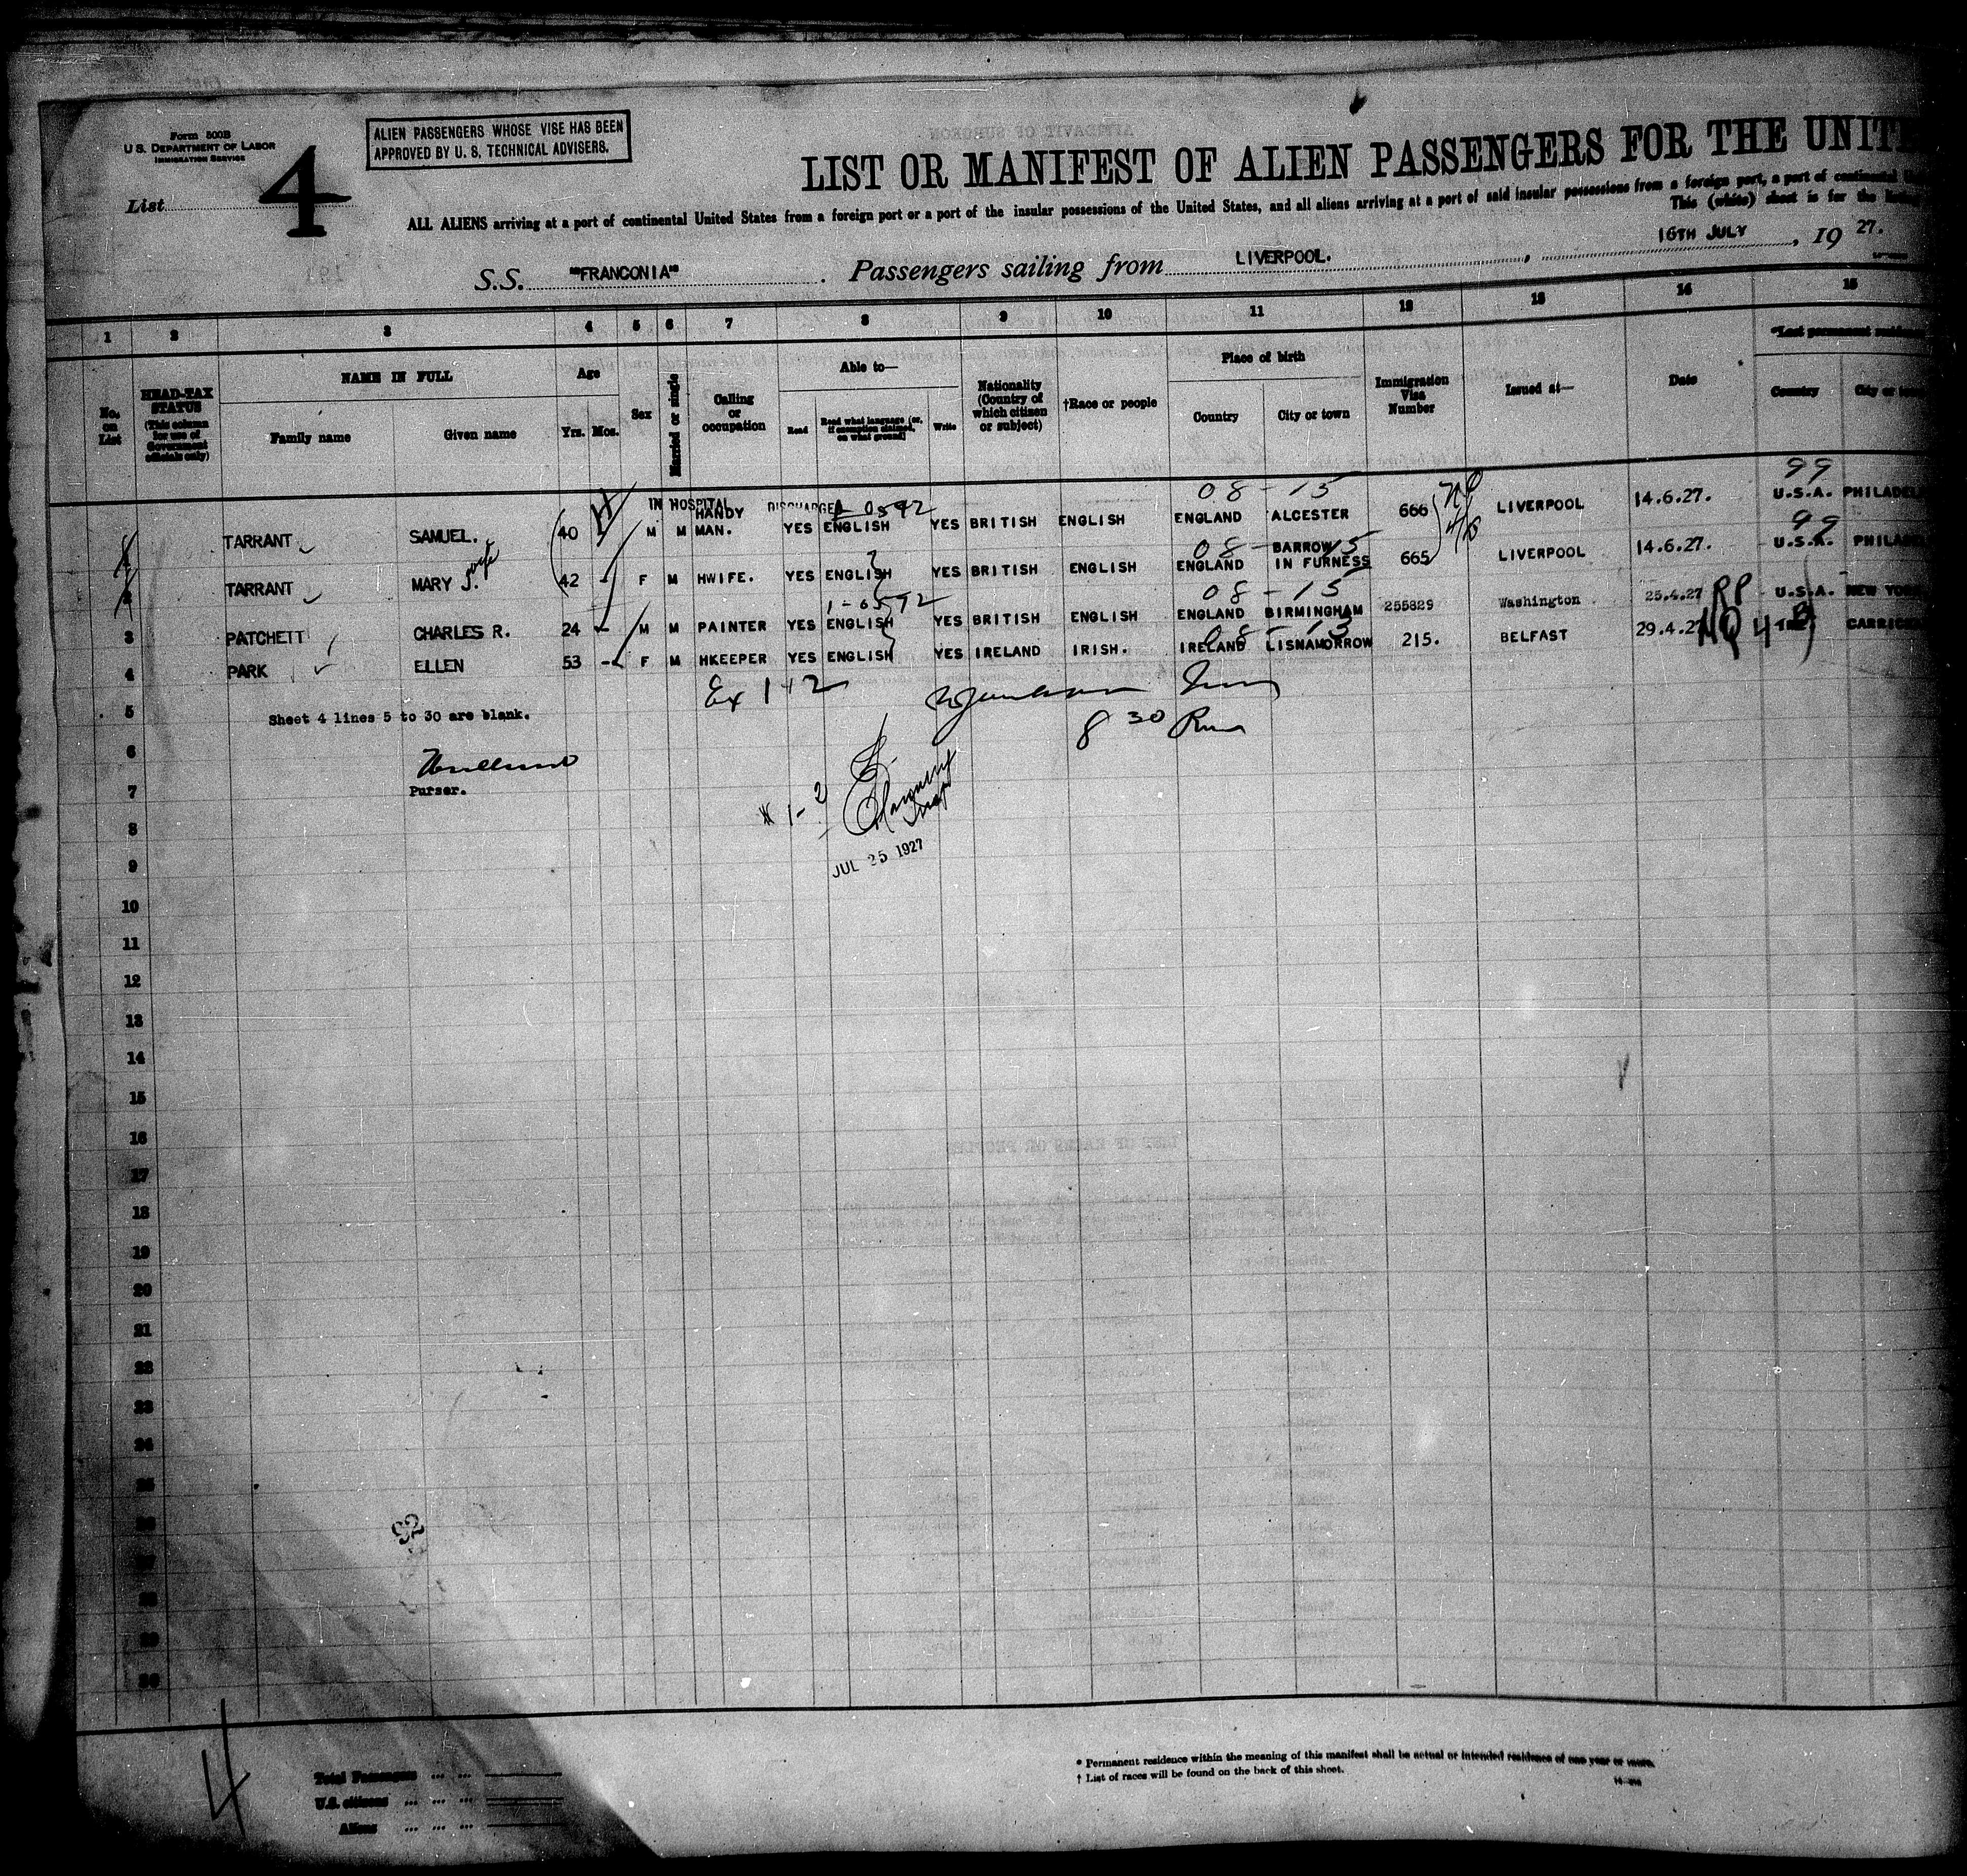 Form 500B
U. S. DEPARTMENT OF LABOR
IMMIGRATION SERVICE
List 4
ALIEN PASSENGERS WHOSE VISE HAS BEEN
APPROVED BY U. S. TECHNICAL ADVISERS.
LIST OR MANIFEST OF ALIEN PASSENGERS FOR THE UNITE
ALL ALIENS arriving at a port of continental United States from a foreign port or a port of the insular possessions of the United States, and all aliens arriving at a port of said insular possessions from a foreign port, a port of continental
This (white) sheet is for the
S.S. "FRANCONIA" . Passengers sailing from LIVERPOOL. , 16TH JULY , 19 27.
1 2 3 4 5 6 7 8 9 10 11 12 13 14 15
No. on List
HEAD-TAX STATUS (This column for use of Government officials only)
NAME IN FULL
Family name Given name
Age
Yrs. Mos.
Sex
Married or single
Calling or occupation
Able to—
Read Read what language (or, if exemption claimed, on what ground) Write
Nationality (Country of which citizen or subject)
†Race or people
Place of birth
Country City or town
Immigration Visa Number
Issued at—
Date
*Last permanent
Country City or
IN HOSPITAL DISCHARGED 0592 08-15 99
1 TARRANT SAMUEL. 40 M M HANDY MAN. YES ENGLISH YES BRITISH ENGLISH ENGLAND ALCESTER 666 LIVERPOOL 14.6.27. U.S.A. PHILADEL
08-15 99
2 TARRANT MARY J. wife 42 F M HWIFE. YES ENGLISH YES BRITISH ENGLISH ENGLAND BARROW IN FURNESS 665 LIVERPOOL 14.6.27. U.S.A. PHILA
1-0592 08-15
3 PATCHETT CHARLES R. 24 M M PAINTER YES ENGLISH YES BRITISH ENGLISH ENGLAND BIRMINGHAM 255829 Washington 25.4.27 RP U.S.A. NEW YO
4 PARK ELLEN 53 F M HKEEPER YES ENGLISH YES IRELAND IRISH. IRELAND LISNAMORROW 215. BELFAST 29.4.27 NQ 4 IRE CARRICK
Ex 1+2
5 Sheet 4 lines 5 to 30 are blank.
8 30
6
7 Purser.
1-2
8
JUL 25 1927
9
10
11
12
13
14
15
16
17
18
19
20
21
22
23
24
25
26
27
28
29
30
92
4
Total Passengers ... ...
U.S. citizens ... ... ...
Aliens ... ... ...
* Permanent residence within the meaning of this manifest shall be actual or intended residence of one year or more.
† List of races will be found on the back of this sheet.